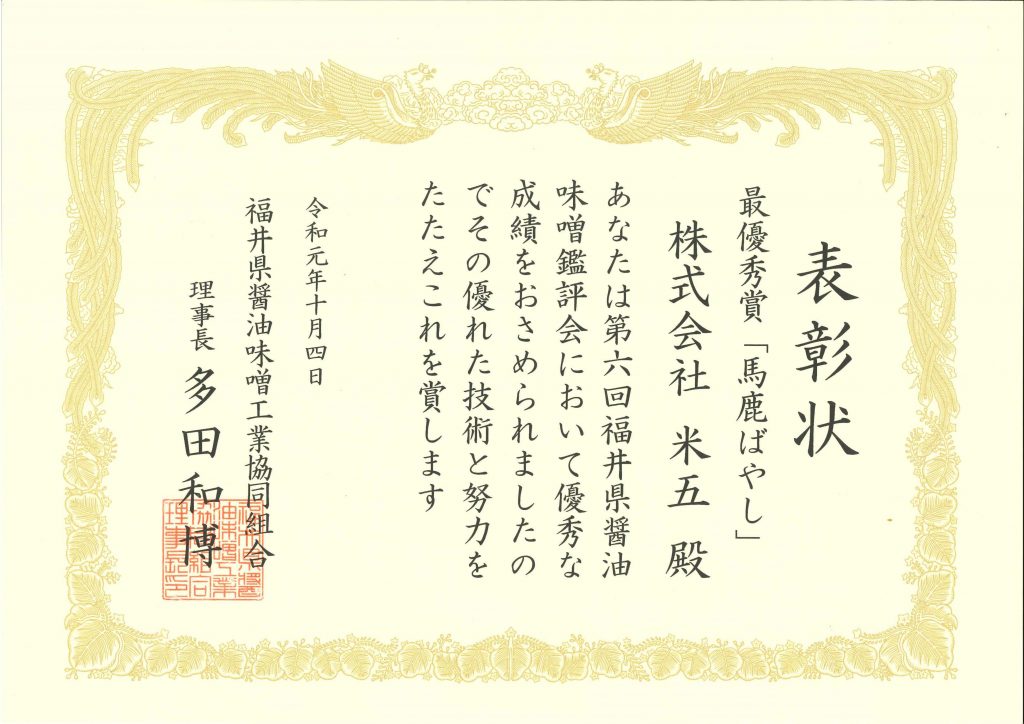 表彰状
最優秀賞「馬鹿ばやし」
株式会社 米五 殿
あなたは第六回福井県醤油
味噌鑑評会において優秀な
成績をおさめられましたの
でその優れた技術と努力を
たたえこれを賞します
令和元年十月四日
福井県醤油味噌工業協同組合
理事長 多田和博